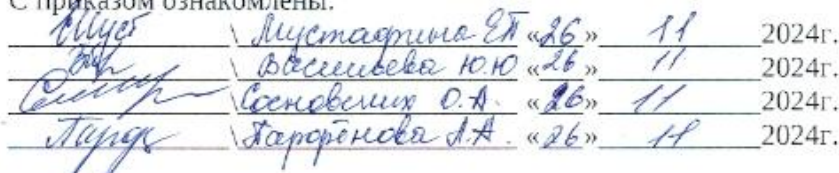 С приказом ознакомлены:
\ Мустафина ЕП «26» 11 2024г.
\ Васильева Ю.Ю «26» 11 2024г.
\ Сосновских О.А. «26» 11 2024г.
\ Парфёнова А.А. «26» 11 2024г.